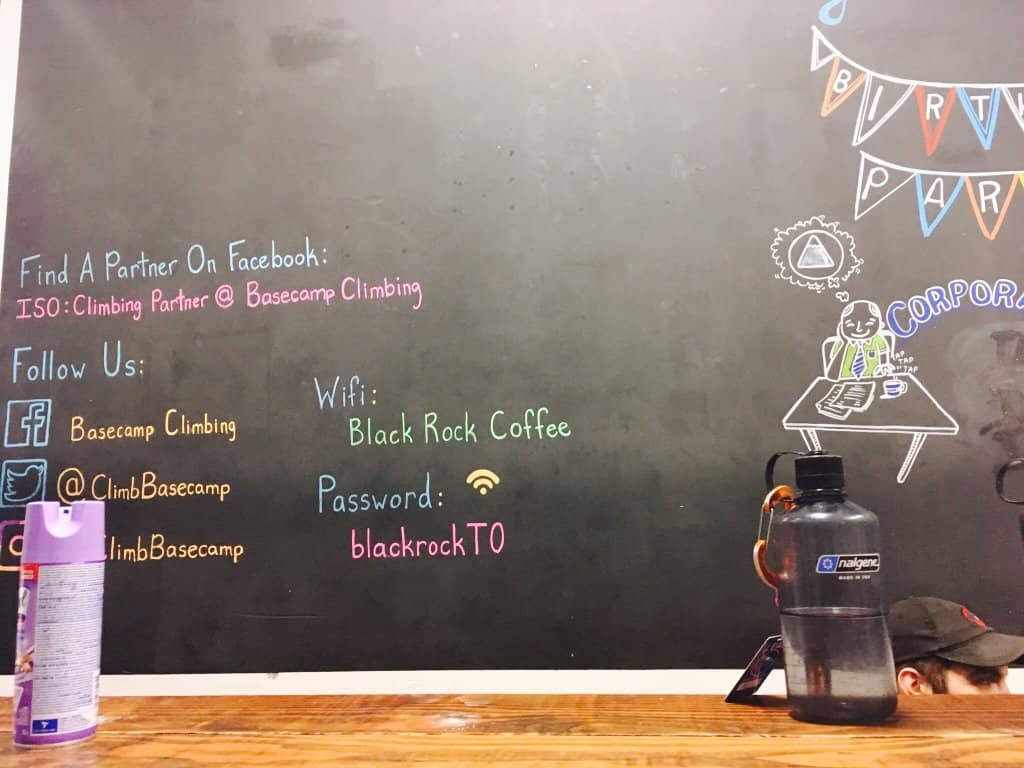 BIRT
PAR
Find A Partner On Facebook:
ISO: Climbing Partner @ Basecamp Climbing
CORPORA
TAP
TAP
Follow Us:
Basecamp Climbing
@ClimbBasecamp
ClimbBasecamp
Wifi:
Black Rock Coffee
Password:
blackrockTO
nalgene
MADE IN USA